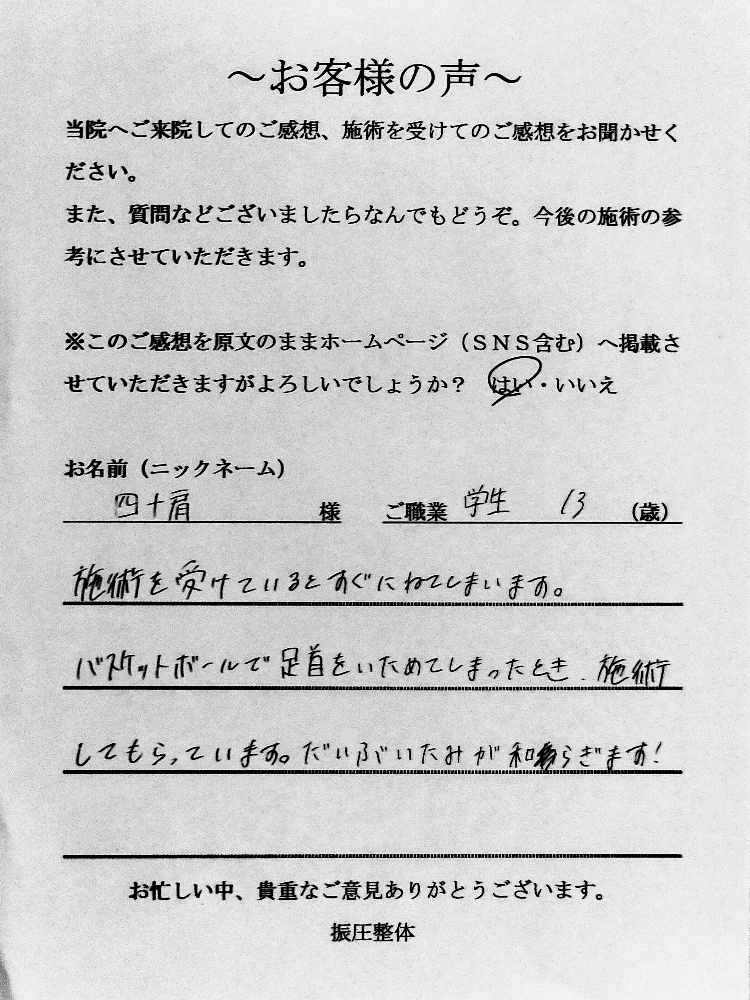 ～お客様の声～
当院へご来院してのご感想、施術を受けてのご感想をお聞かせく
ださい。
また、質問などございましたらなんでもどうぞ。今後の施術の参
考にさせていただきます。
※このご感想を原文のままホームページ（ＳＮＳ含む）へ掲載さ
せていただきますがよろしいでしょうか？　はい・いいえ
お名前（ニックネーム）
四十肩 様 ご職業 学生 13 （歳）
施術を受けているとすぐにねてしまいます。
バスケットボールで足首をいためてしまったとき、施術
してもらっています。だいぶいたみが和らぎます!
お忙しい中、貴重なご意見ありがとうございます。
振圧整体